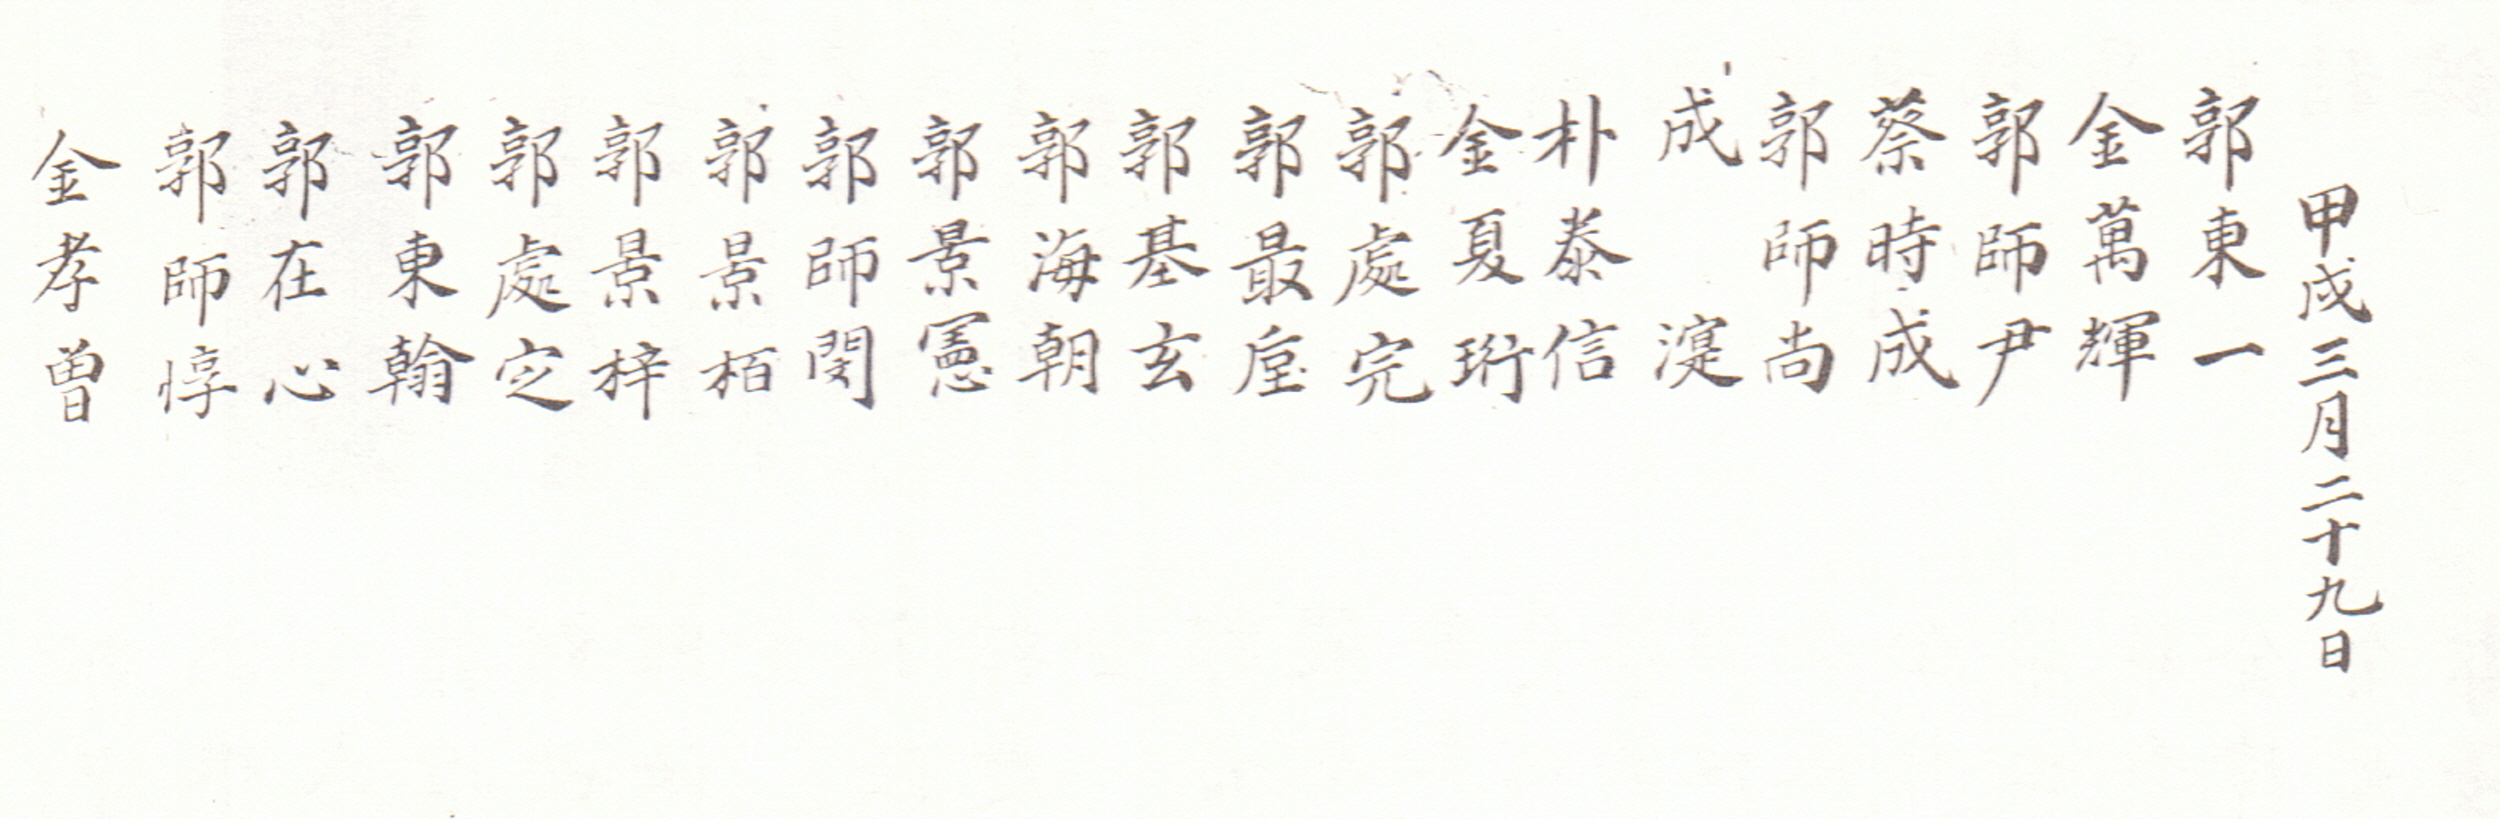 甲戌三月二十九日
郭東一
金萬輝
郭師尹
蔡時成
郭師尚
成 寔
朴泰信
金夏珩
郭處完
郭最垕
郭基玄
郭海朝
郭景憲
郭師閔
郭景栢
郭景梓
郭處定
郭東翰
郭在心
郭師惇
金孝曾